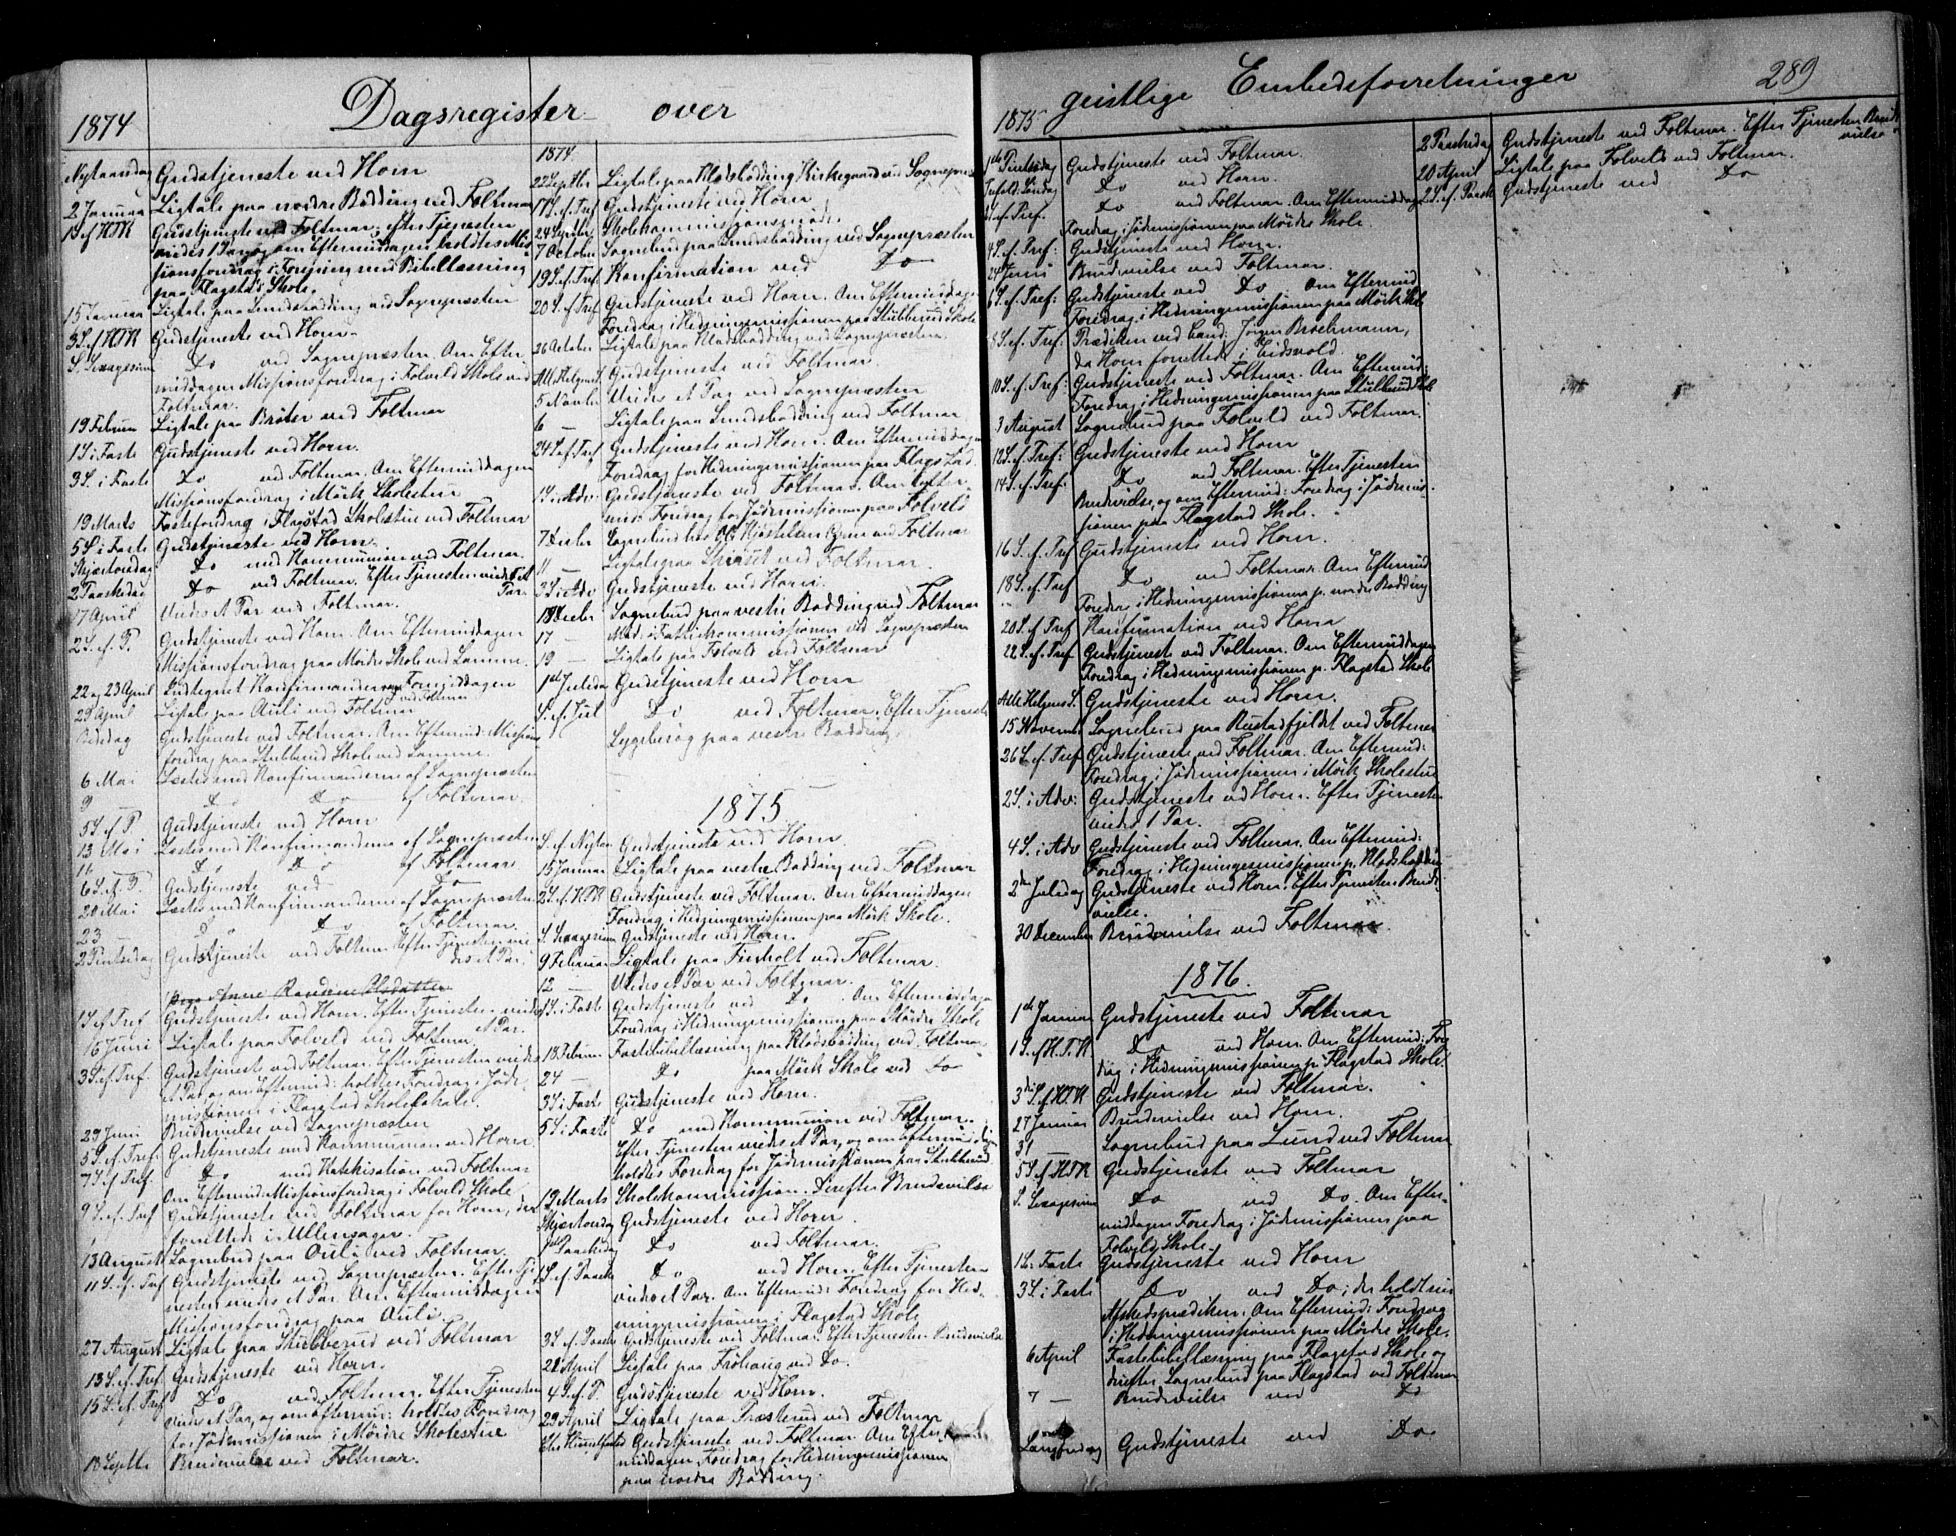 Dagsregister over
1874
Nytaarsdag Gudstjeneste ved Horn
2 Januar Ligtale paa nordre Bødding ved Foltmar
1 S. ef. H3K Gudstjeneste ved Foltmar; efter Tjenesten
viedes 1 Par, og om Eftermiddagen holdtes Mis-
sionsforedrag i Forening med Bibellæsning
paa Flagstad Skole.
15 Januar Ligtale paa Sundsbødding ved Sognepræsten
3 S. ef H3K Gudstjeneste ved Horn
S. Sexagesima Do ved Sognepræsten. Om Efter-
middagen Missionsforedrag i Folveld Skole ved
Foltmar.
19 Februar Ligtale paa Bröter ved Foltmar
1 S i Faste Gudstjeneste ved Horn.
3 S. i Faste Do ved Foltmar. Om Eftermiddagen
Missionsforedrag i Mörk Skolestue
19 Marts Fasteforedrag i Flagstad Skolestue ved Foltmar
5 S i Faste Gudstjeneste ved Horn.
Skjærtorsdag Do med Kommunion ved Foltmar.
2 Paaskedag Do ved Foltmar. Efter Tjenesten viedes et
Par.
17 April Viedes et Par ved Foltmar.
2 S. ef. P. Gudstjeneste ved Horn. Om Eftermiddagen
Missionsforedrag paa Mördre Skole ved Samme.
22 og 23 April Indtegnet Konfirmanderne Formiddagen
29 April Ligtale paa Auli ved Foltmar
Bededag Gudstjeneste ved Foltmar. Om Eftermid: Missions
foredrag paa Stubberud Skole ved Samme.
6 Mai Læstes med Konfirmanderne af Sognepræsten
9 Do Do af Foltmar.
5 S. ef P. Gudstjeneste ved Horn
13 Mai Læstes med Konfirmanderne af Sognepræsten
Do Do af Foltmar
6 S. ef. P. Gudstjeneste ved Do
20 Mai Læstes med Konfirmanderne af Sognepræsten
23 — Do Do af Foltmar.
2 Pintsedag Gudstjeneste ved Foltmar. Efter Tjenesten vie-
des et Par.
1 S. ef. Tref Gudstjeneste ved Horn. Efter Tjenesten viedes
et Par.
16 Juni Ligtale paa Folveld ved Foltmar.
3 S. ef. Tref. Gudstjeneste ved Foltmar. Efter Tjenesten viedes
et Par, og om Eftermid: holdtes Foredrag i Jöde-
missionen i Flagstad Skolelokale.
29 Juni Brudevielse ved Sognepræsten
5 S. ef. Tref. Gudstjeneste med Kommunion ved Horn.
7 S ef Tref. Do med Katekisation ved Foltmar
Om Eftermid: Missionsforedrag i Folveld Skole
9 S. ef. Tref Gudstjeneste ved Foltmar for Horn, der
forrettede i Ullensager.
13 August Sognebud paa Auli ved Foltmar.
11 S. ef. Tref Gudstjeneste ved Sognepræsten. Efter Tje-
nesten viedes et Par. Om Eftermiddagen
Missionsforedrag paa Auli.
27 August Ligtale paa Stubberud ved Foltmar
13 S. ef. Tref Gudstjeneste ved Horn.
15 S. ef. Tref Do ved Foltmar. Efter Tjenesten
viedes et Par, og om Eftermid: holdtes Foredrag
for Jödemissionen i Mördre Skolestue
18 Septbr Brudevielse ved Foltmar.
1874.
22 Septbr Ligtale paa Klodsbödding Kirkegaard ved Sognepræst
17 S. ef. Tref Gudstjeneste ved Horn
24 Septbr Skolekommissionsmöde.
7 October Sognebud paa Sundsbødding ved Sognepræsten
19 S. ef. Tref Konfirmation ved Do
20 S. ef Tref Gudstjeneste ved Horn. Om Eftermiddagen
Foredrag i Hedningemissionen paa Stubberud Skole
26 October Ligtale paa Klodsbødding ved Sognepræsten
Alle Helgensd. Gudstjeneste ved Foltmar.
5 Novbr Viedes et Par ved Sognepræsten
6 — Ligtale paa Sundsbødding ved Foltmar
24 S. ef. Tref Gudstjeneste ved Horn. Om Eftermiddagen
Foredrag for Hedningemissionen paa Flagstad
1 S. i Adv: Gudstjeneste ved Foltmar. Om Efter-
mid: Foredrag for Jödemissionen paa Folveld
7 Decbr Sognebud hos Ole Kjöstelsen Byrm ved Foltmar
11 — Ligtale paa Skaaset ved Foltmar.
3 S i Adv Gudstjeneste ved Horn.
Decbr Sognebud paa vestre Bødding ved Foltmar
17 — Möde i Fattigkommissionen ved Sognepræsten
19 — Ligtale paa Folveld ved Foltmar
1ste Juledag Gudstjeneste ved Horn
S. ef. Jul Do ved Foltmar. Efter Tjeneste
Sygebesög paa vestre Bødding.
1875
S. ef. Nytaar Gudstjeneste ved Horn.
15 Januar Ligtale paa vestre Bødding ved Foltmar
2 S. ef. H3K Gudstjeneste ved Foltmar. Om Eftermiddagen
Foredrag i Hedningemissionen paa Mörk Skole.
S. Sexagesima Gudstjeneste ved Horn.
9 Februar Ligtale paa Fuxholt ved Foltmar.
12 — Viedes et Par ved Foltmar.
1 S. i Faste Gudstjeneste ved Do. Om Eftermiddagen
Foredrag i Hedningemissionen paa Mördre Skole
18 Februar Fastebibellæsning paa Klodsbødding ved Foltmar
24 — Do paa Mörk Skole ved Do
3 S i Faste Gudstjeneste ved Horn.
5 S i Faste Do med Kommunion ved Foltmar.
Efter Tjenesten viedes et Par, og om Eftermiddagen
holdtes Foredrag for Jödemissionen paa Stubberud
19 Marts Skolekommission. Derefter Brudevielse
Skjærtorsdag Gudstjeneste ved Horn.
1ste Paaskedag Do ved Foltmar.
1 S. ef. Paaske Do ved Horn. Efter Tjenesten
viedes et Par. Om Eftermid: Foredrag for Hed-
ningemissionen i Flagstad Skole
3 S. ef. Paaske Gudstjeneste ved Foltmar. Efter Tjenesten Brudevielse
22 April Ligtale paa Fröhaug ved Do.
4 S. ef. P. Gudstjeneste ved Horn.
29 April Ligtale paa Præsterud ved Foltmar
Chr. Himmelfartsd Gudstjeneste ved Foltmar. Om Efter-
middagen Foredrag for Hedningemissionen
paa nordre Bødding.
geistlige Embedsforretninger 289
1875
1ste Pintsedag Gudstjeneste ved Foltmar.
Trefold: Söndag Do ved Horn.
2 S. ef. Tref. Do ved Foltmar. Om Eftermiddag
Foredrag i Jödemissionen paa Mördre Skole.
4 S. ef. Tref: Gudstjeneste ved Horn.
24 Juni Brudevielse ved Foltmar.
6 S. ef. Tref: Gudstjeneste ved Do Om Eftermid
Foredrag i Hedningemissionen paa Mörk Skole
8 S. ef. Tref: Prædiken ved Cand: Jörgen Brochmann,
da Horn forrettede i Eidsvold.
10 S. ef. Tref: Gudstjeneste ved Foltmar. Om Eftermid:
Foredrag i Hedningemissionen paa Stubberud Skole
3 August Sognebud paa Folveld ved Foltmar.
12 S. ef. Tref: Gudstjeneste ved Horn
14 S. ef. Tref: Do ved Foltmar. Efter Tjenesten
Brudevielse, og om Eftermid: Foredrag i Jödemis-
sionen paa Flagstad Skole.
16 S. ef. Tref Gudstjeneste ved Horn.
18 S. ef. Tref Do ved Foltmar. Om Eftermid
Foredrag i Hedningemissionen p. nordre Bødding
20 S. ef Tref Konfirmation ved Horn
22 S. ef. Tref Gudstjeneste ved Foltmar. Om Eftermiddagen
Foredrag i Hedningemissionen p. Flagstad Skole
Alle Helgens S. Gudstjeneste ved Horn.
15 Novemb. Sognebud paa Rustadfjeldet ved Foltmar
26 S. ef. Tref Gudstjeneste ved Foltmar. Om Eftermid:
Foredrag i Jödemissionen i Mörk Skolestue
2 S. i Adv: Gudstjeneste ved Horn. Efter Tjenesten
viedes 1 Par.
4 S. i Adv Gudstjeneste ved Foltmar. Om Eftermid:
Foredrag i Hedningemissionen p. Klodsbødding
2den Juledag Gudstjeneste ved Horn. Efter Tjenesten Brude-
vielse.
30 December Brudevielse ved Foltmar.
1876.
1ste Januar Gudstjeneste ved Foltmar
1 S. ef H.3.K Do ved Horn. Om Eftermid: Fore-
drag i Hedningemissionen p. Flagstad Skole.
3die S. ef H3K Gudstjeneste ved Foltmar.
27 Januar Brudevielse ved Horn.
31 Sognebud paa Lund ved Foltmar
5 S. ef H3K Gudstjeneste ved Foltmar
S. Sexagesima Do ved Do. Om Efter-
middagen Foredrag i Jödemissionen paa
Folveld Skole.
1 S. i Faste Gudstjeneste ved Horn
3 S. i Faste Do ved Do; der holdt sin
Afskedsprædiken. Om Eftermid: Foredrag
i Hedningemissionen paa Mördre Skole.
6 April Fastebibellæsning paa Flagstad Skole og
derefter Sognebud paa Flagstad ved Foltmar
7 — Brudevielse ved Do
Langfredag Gudstjeneste ved Do
2 Paaskedag Gudstjeneste ved Foltmar. Efter Tjenesten Brude-
vielse
20 April Ligtale paa Folveld ved Foltmar.
2 S. ef. Paaske Gudstjeneste ved Do